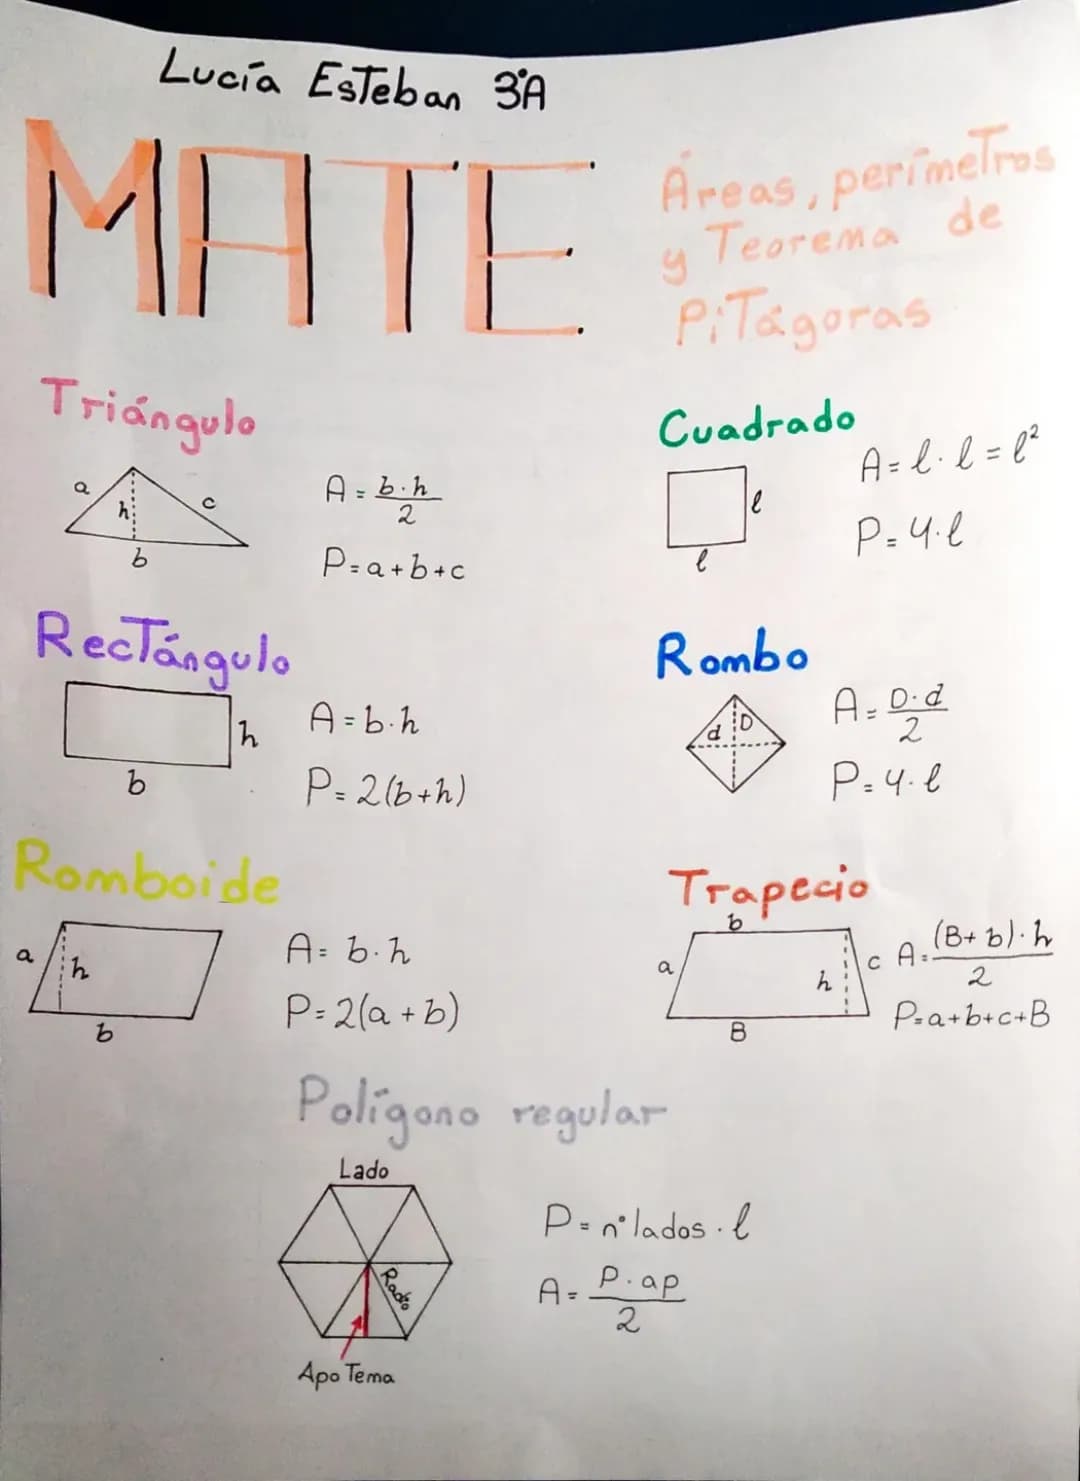 Lucía Esteban 3ºA
MATE
Áreas, perímetros
y Teorema de
Pitágoras
Triángulo
a
h
c
b
A = b·h / 2
P = a + b + c
Cuadrado
l
l
A = l · l = l²
P = 4·l
Rectángulo
h
b
A = b·h
P = 2(b+h)
Rombo
d
D
A = D·d / 2
P = 4·l
Romboide
a
h
b
A = b·h
P = 2(a + b)
Trapecio
b
a
h
c
B
A = (B + b)·h / 2
P = a + b + c + B
Polígono regular
Lado
Radio
Apotema
P = nº lados · l
A = P·ap / 2